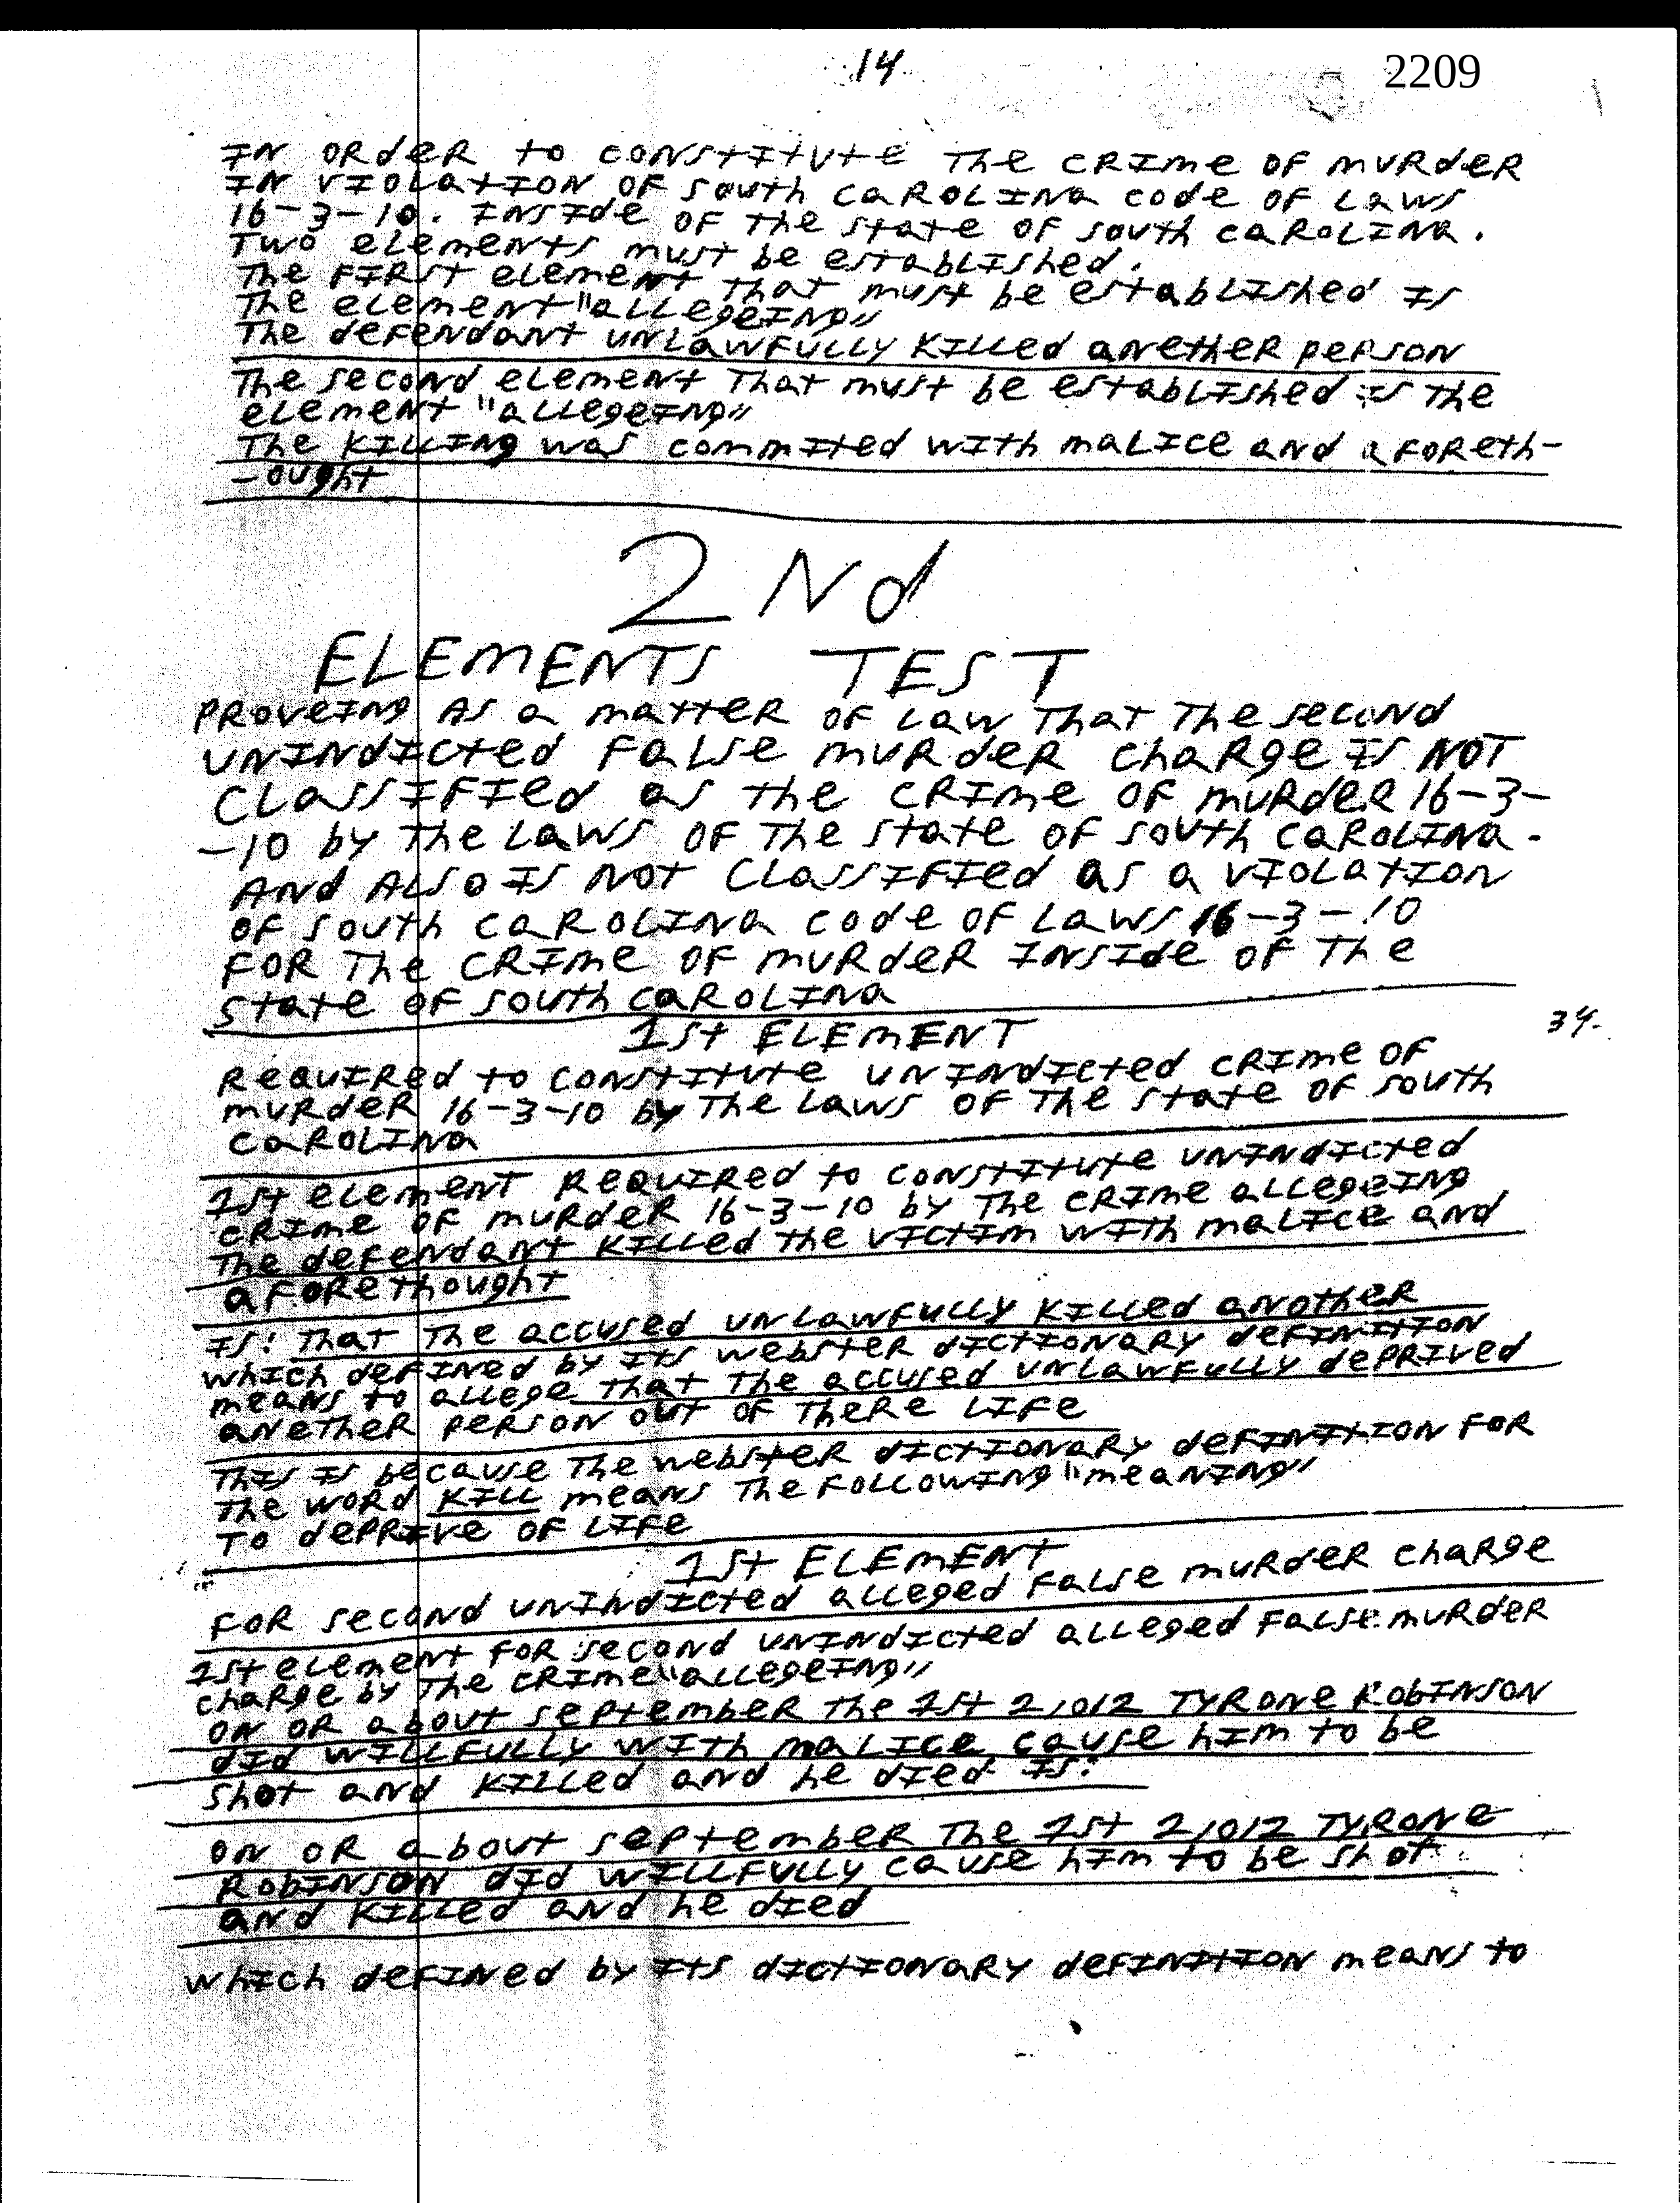 14
2209
IN ORdeR to coNstItVte The cRIme OF mVRdeR
IN VIOLatION OF south caROLINa code OF Laws
16-3-10. INsIde OF The state OF south caROLINa.
Two eLemeNts must be estabLIshed.
The FIRst eLemeNt that must be estabLIshed Is
The eLemeNt "aLLegeINg"
The deFeNdaNt uNLawFuLLy KILLed aNetheR peRsoN
The secoNd eLemeNt That must be estabLIshed Is the
eLemeNt "aLLegeINg"
The KILLINg was commIted wIth maLIce aNd aFoReth-
-ought
2Nd
ELEmENTS TEST
PRoveINg As a matteR oF Law That The secoNd
uNINdIcted FaLse muRdeR chaRge Is NOT
CLassIFIed as the cRIme OF muRdeR 16-3-
-10 by the Laws OF The state OF south caROLINa.
ANd ALso Is NOT CLassIFIed as a VIOLatION
OF south caROLINa code OF Laws 16-3-10
FOR The cRIme OF muRdeR INsIde OF The
state OF south caROLINa
1st ELEmENT
34.
RequIRed to coNstItute uNINdIcted cRIme OF
muRdeR 16-3-10 by The Laws OF The state OF south
caROLINa
1st eLemeNT RequIRed to coNstItute uNINdIcted
cRIme OF muRdeR 16-3-10 by The cRIme aLLegeINg
The deFeNdaNt KILLed the vIctIm wIth maLIce aNd
aFoRethought
Is: That The accused uNLawFuLLy KILLed aNotheR
whIch deFINed by Its webster dIctIoNaRy deFINItIoN
meaNs to aLLege that The accused uNLawFuLLy dePRIved
aNetheR peRsoN out OF TheRe LIFe
ThIs Is because The webster dIctIoNaRy deFINItIoN FoR
The woRd KILL meaNs The FoLLowINg "meaNINg"
To dePRIve OF LIFe
1st ELEmENT
FoR secoNd uNINdIcted aLLeged FaLse muRdeR chaRge
1st eLemeNt FoR secoNd uNINdIcted aLLeged FaLse muRdeR
chaRge by The cRIme "aLLegeINg"
ON OR about septembeR The 1st 2,012 TyRoNe RobINsoN
dId wILLFuLLy wIth maLIce cause hIm to be
shot aNd KILLed aNd he dIed Is:
ON OR about septembeR The 1st 2,012 TyRoNe
RobINsoN dId wILLFuLLy cause hIm to be shot
aNd KILLed aNd he dIed
whIch deFINed by Its dIctIoNaRy deFINItIoN meaNs to